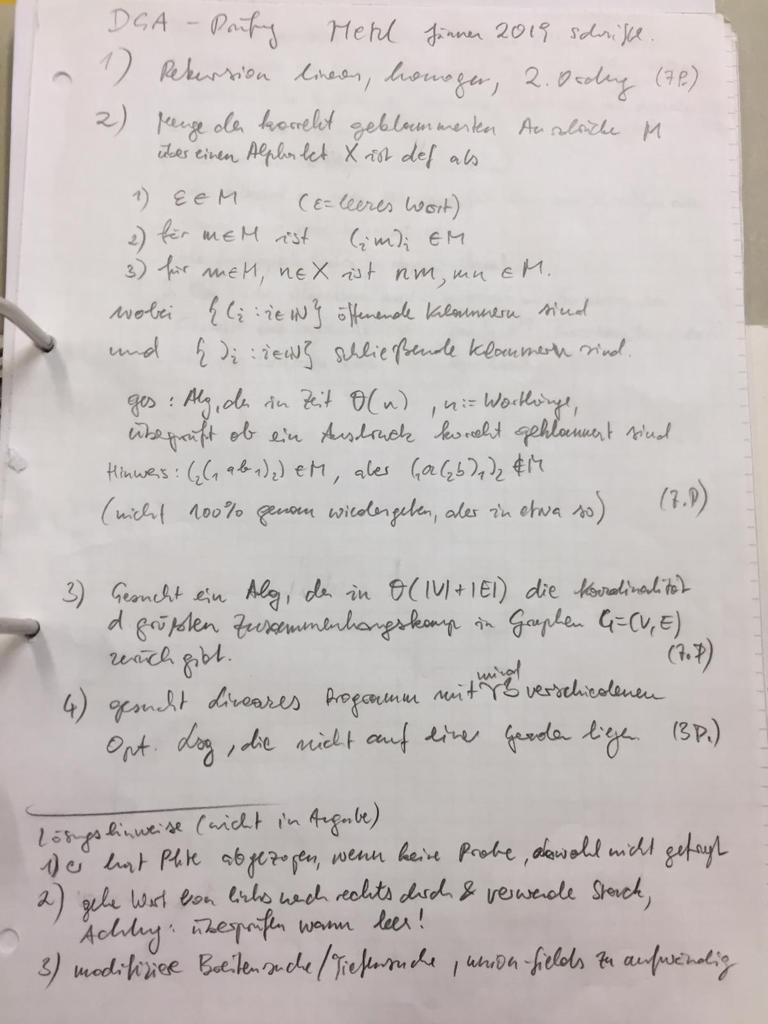 DGA - Prüfung Jänner 2019 schriftl.
1) Rekursion linear, homogen, 2. Ordng (7P.)
2) Menge der korrekt geklammerten Ausdrücke M
über einen Alphabet X ist def als
1) ε ∈ M (ε = leeres Wort)
2) für m∈M ist (ᵢm)ᵢ ∈ M
3) für m∈M, n∈X ist nm, mn ∈ M.
wobei {(ᵢ : i∈ℕ} öffnende Klammern sind
und {)ᵢ : i∈ℕ} schließende Klammern sind.
ges: Alg, der in Zeit Θ(n), n:= Wortlänge,
überprüft ob ein Ausdruck korrekt geklammert sind
Hinweis: (₂(₁ab₁)₂) ∈ M, aber (₁a(₂b)₁)₂ ∉ M
(nicht 100% genau wiedergeben, aber in etwa so) (7.P)
3) Gesucht ein Alg, der in Θ(|V|+|E|) die Kardinalität
d größten Zusammenhangskomp in Graphen G=(V,E)
zurück gibt. (7.P)
4) gesucht lineares Programm mit mind 3 verschiedenen
Opt. Lsg, die nicht auf einer Geraden liegen. (3P.)
Lösungshinweise (nicht in Angabe)
1) er hat Pkte abgezogen, wenn keine Probe, obwohl nicht gefragt
2) gehe Wort von links nach rechts durch & verwende Stack,
Achtng: überprüfen wann leer!
3) modifiziere Breitensuche/Tiefensuche, union-fields zu aufwändig